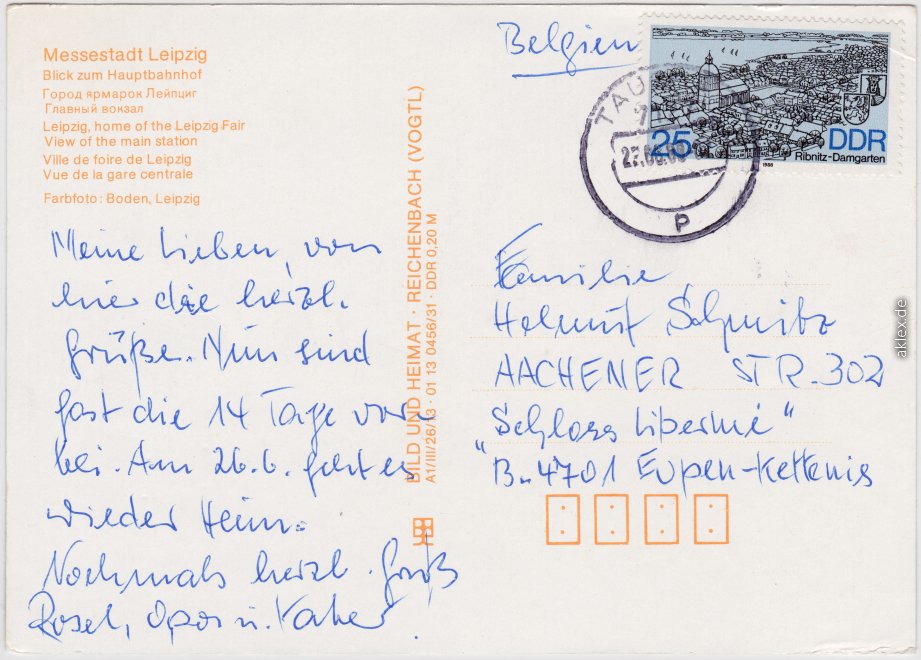 Messestadt Leipzig
Blick zum Hauptbahnhof
Город ярмарок Лейпциг
Главный вокзал
Leipzig, home of the Leipzig Fair
View of the main station
Ville de foire de Leipzig
Vue de la gare centrale
Farbfoto: Boden, Leipzig
Meine Lieben, von
hier die herzl.
Grüße. Nun sind
fast die 14 Tage vor
bei. Am 26.6. geht es
wieder Heim.
Nochmals herzl. Gruß
Rosel, Opos u.
BILD UND HEIMAT · REICHENBACH (VOGTL)
A1/III/26/13 · 01 13 0456/31 · DDR 0,20 M
Belgien
TAU
P
25
DDR
Ribnitz-Damgarten
1988
Familie
Helmut Schmitz
AACHENER STR. 302
"Schloss Libermé"
B-4701 Eupen-Kettenis
aklex.de